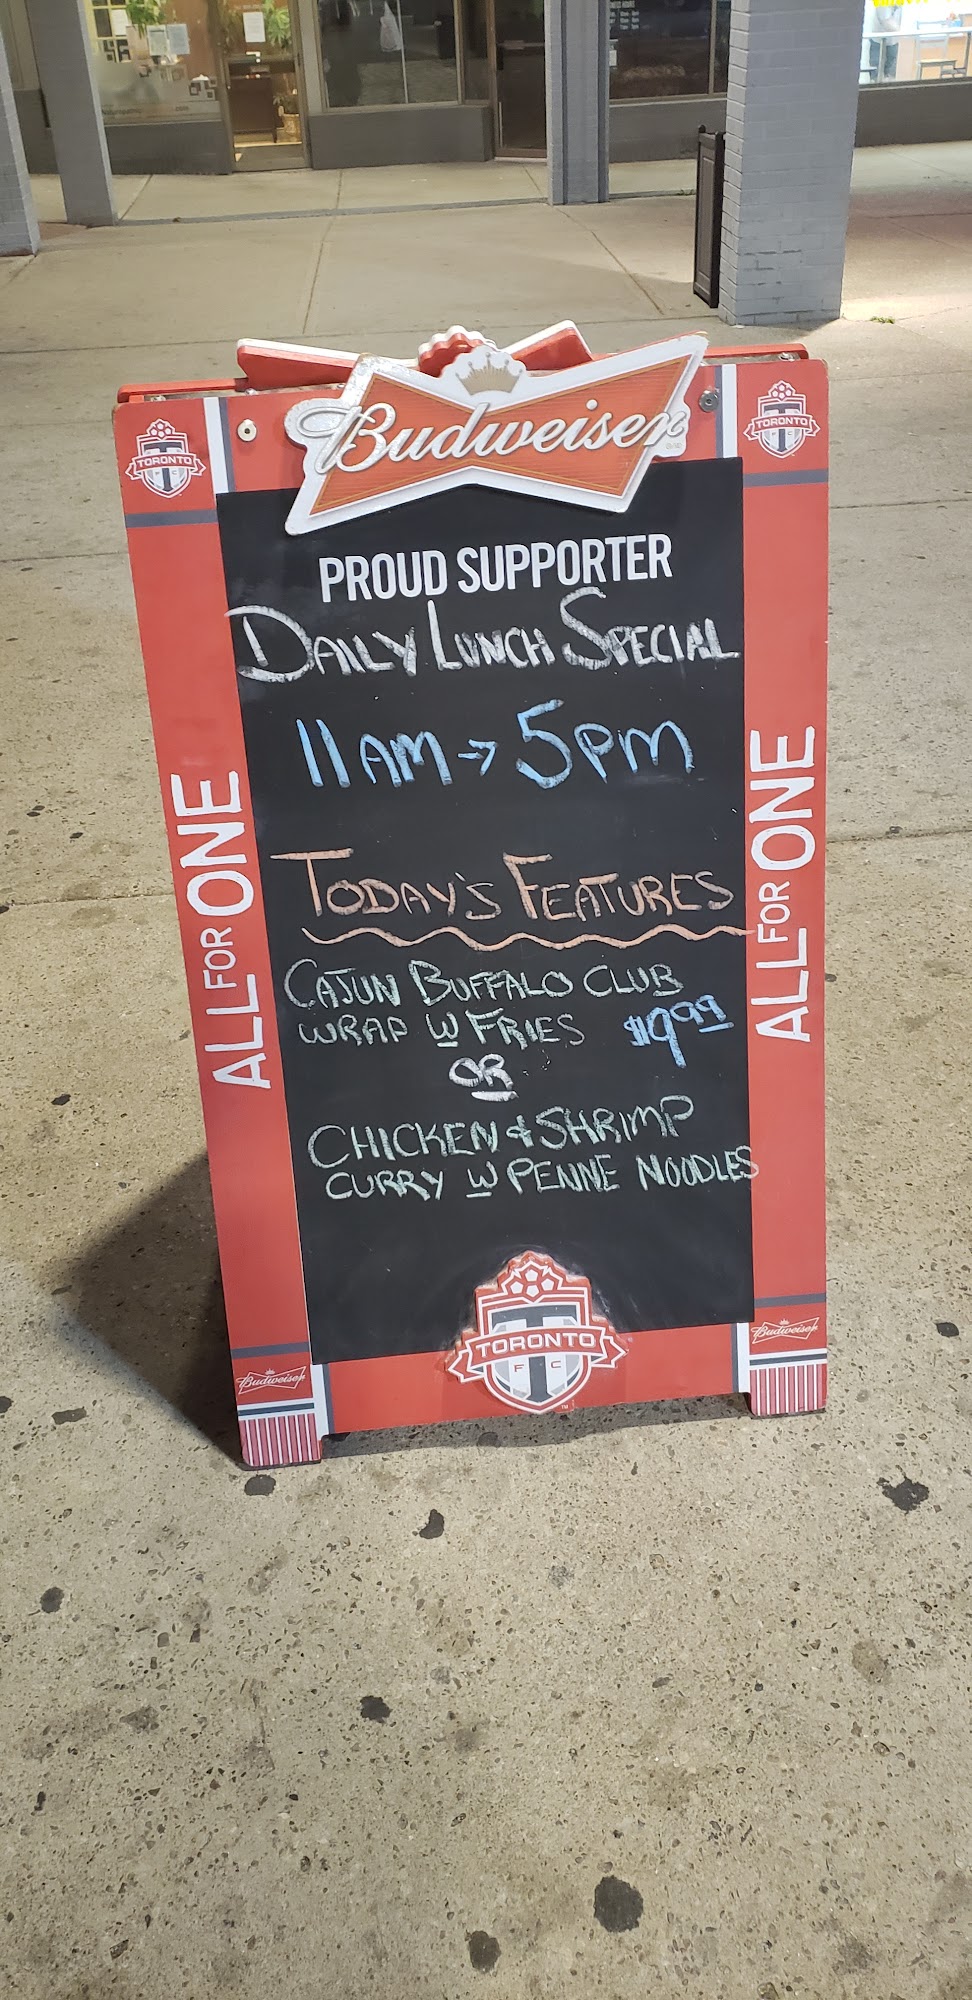 Budweiser
TORONTO
F C
TORONTO
F C
PROUD SUPPORTER
DAILY LUNCH SPECIAL
11AM → 5PM
TODAY'S FEATURES
CAJUN BUFFALO CLUB
WRAP W FRIES $9.99
OR
CHICKEN & SHRIMP
CURRY W PENNE NOODLES
ALL FOR ONE
ALL FOR ONE
TORONTO
F C
Budweiser
Budweiser